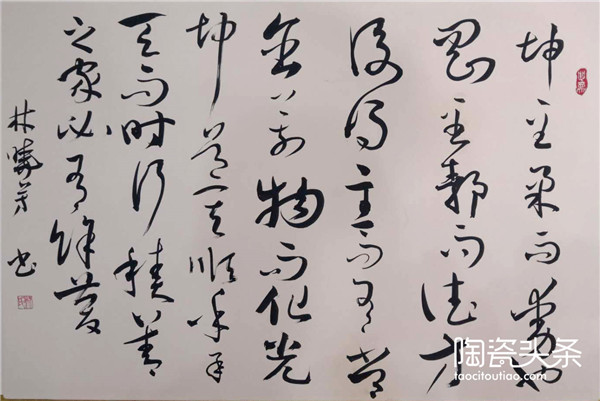 坤至柔而動也
剛至靜而德方
後得主而有常
含萬物而化光
坤道其順乎承
天而時行積善
之家必有餘慶
林芳书
陶瓷头条
taocitoutiao.com